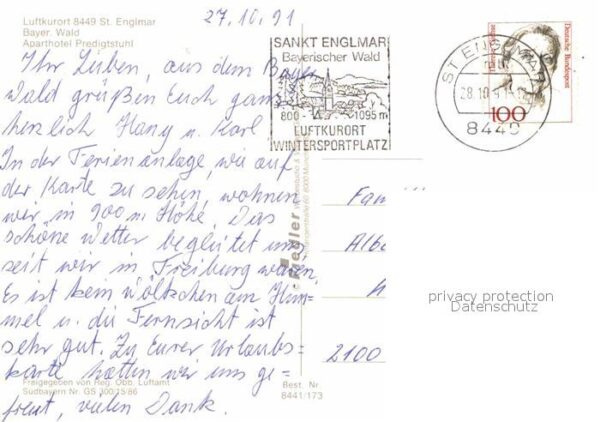 Luftkurort 8449 St. Englmar
Bayer. Wald
Aparthotel Predigtstuhl
27.10.91
Ihr Lieben, aus dem Bayer
Wald grüßen Euch ganz
herzlich Hany u. Karl
In der Ferienanlage, wie auf
der Karte zu sehen, wohnen
wir in 900 m Höhe. Das
schöne Wetter begleitet uns
seit wir in Freiburg waren.
Es ist kein Wölkchen am Him-
mel u. die Fernsicht ist
sehr gut. Zu Eurer Urlaubs-
karte hatten wir uns ge-
freut, vielen Dank.
Freigegeben von Reg. Obb. Luftamt
Südbayern Nr. GS 300/15/86
SANKT ENGLMAR
Bayerischer Wald
800 - 1095 m
LUFTKURORT
WINTERSPORTPLATZ
ST ENGLMAR
28.10.91
8449
Deutsche Bundespost
100
Fam
Albe
2100
privacy protection
Datenschutz
Best. Nr
8441/173